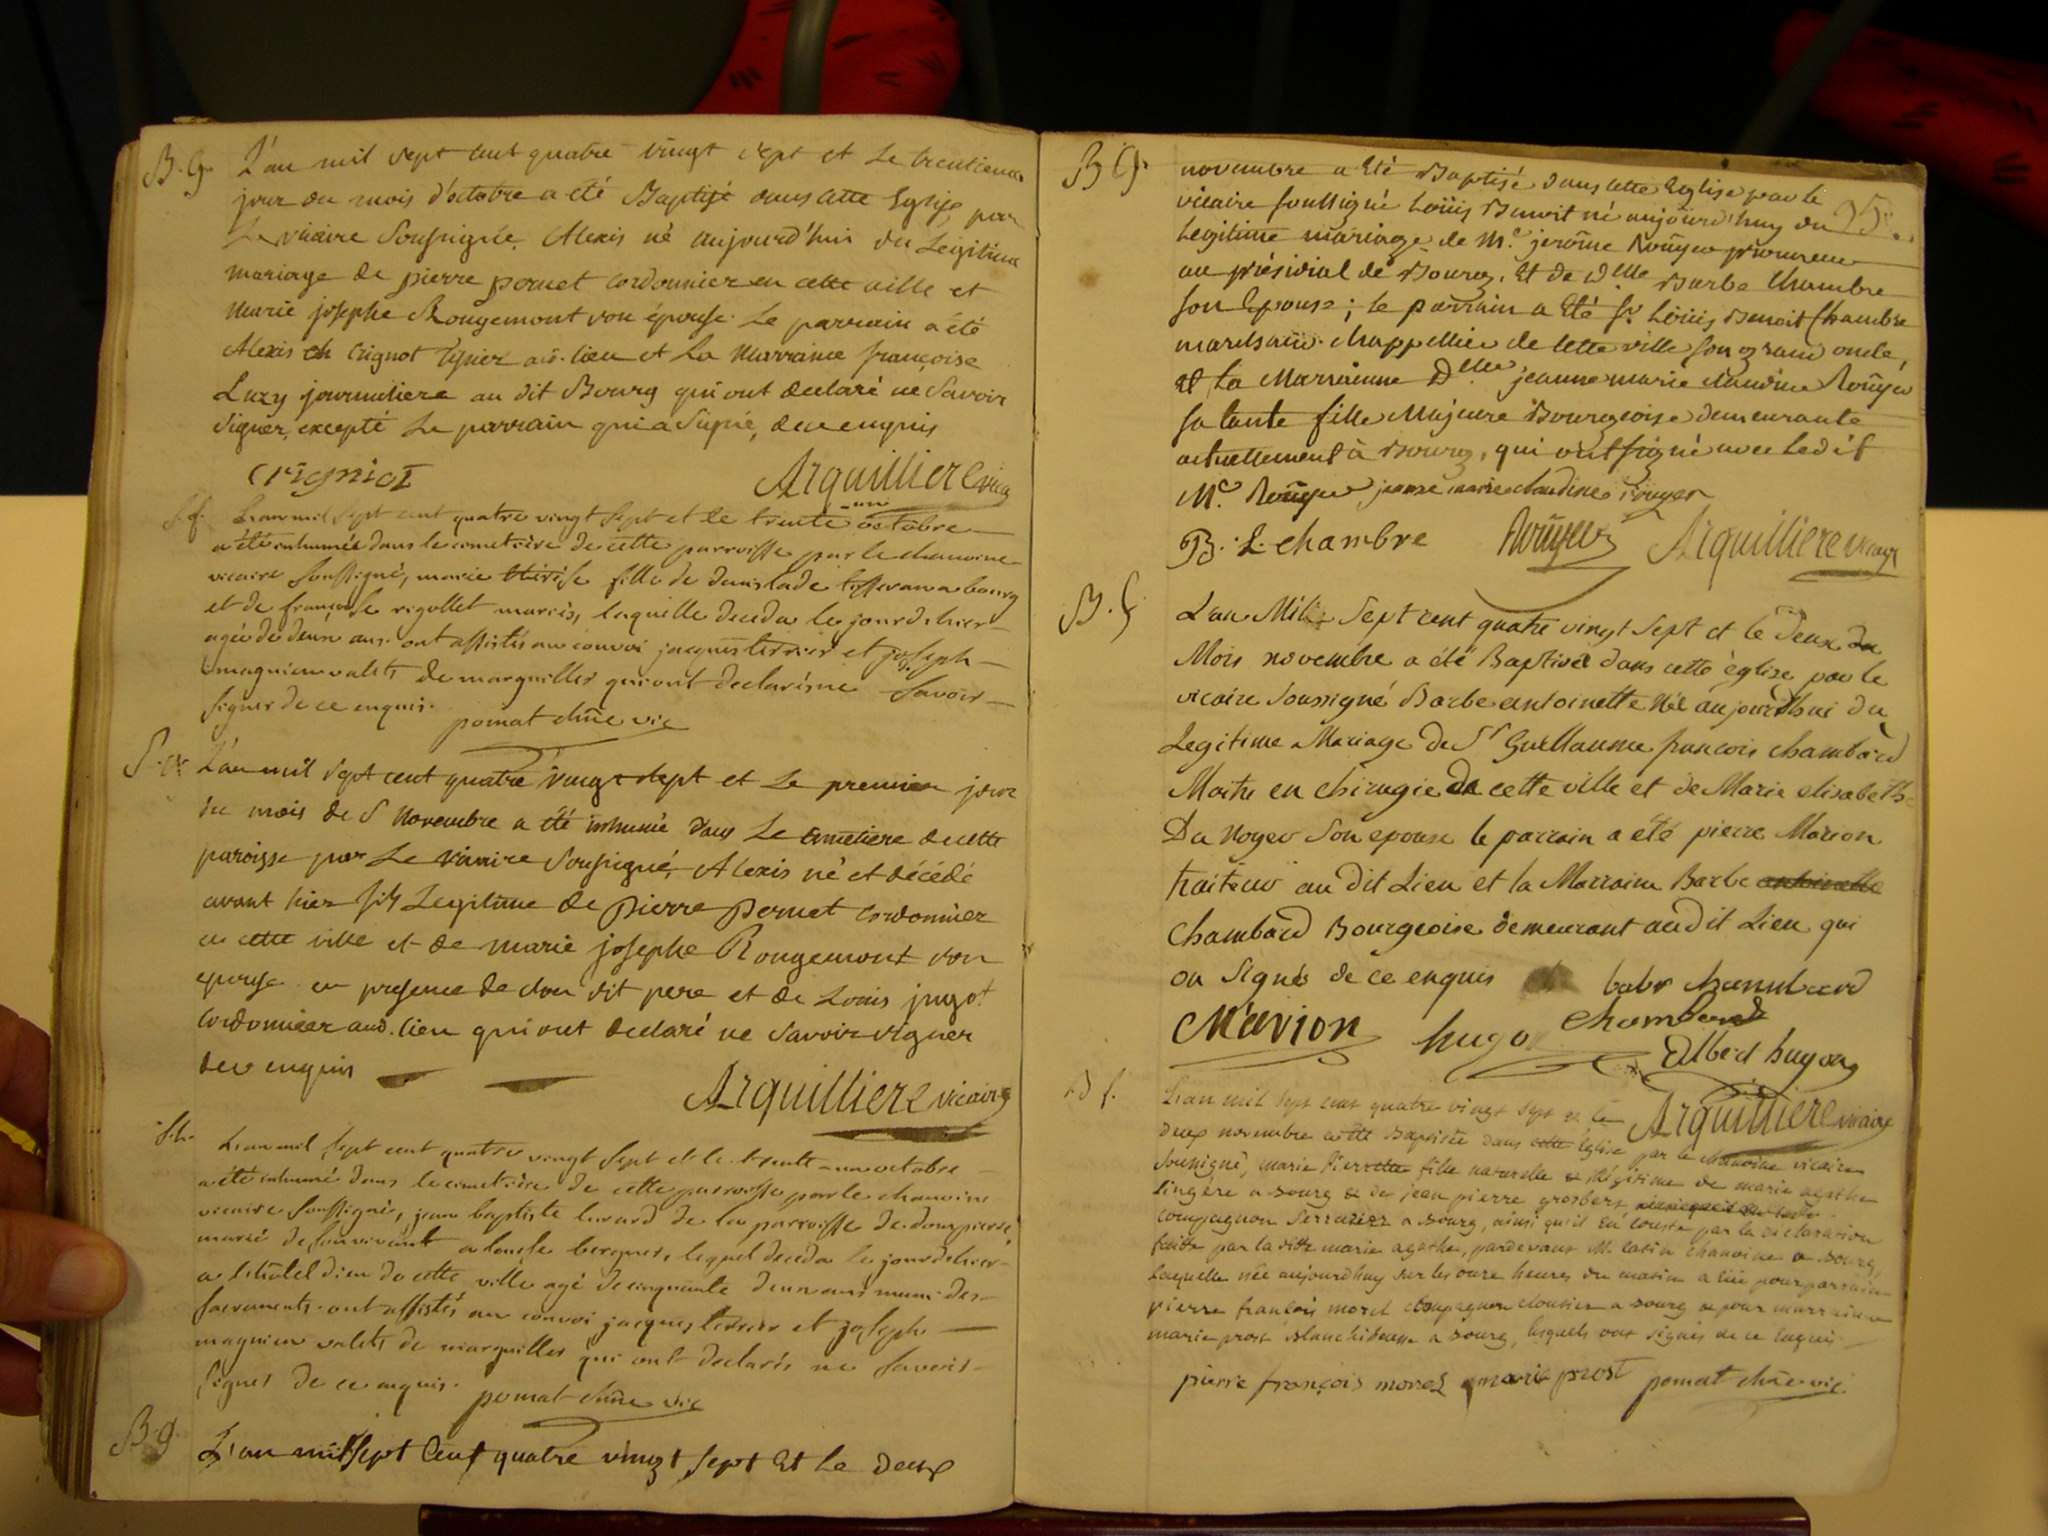 B. g. L'an mil sept cent quatre vingt sept et Le trentieme
jour du mois d'octobre a eté Baptisé dans cette Eglise par
Le vicaire Soussigné Alexis né aujourd'hui du Légitime
mariage de pierre pernet cordonnier en cette ville et
marie josephe Rougemont son épouse. Le parrain a été
Alexis Crignot au. lieu et La Marraine françoise
Luzy journaliere au dit Bourg qui ont declaré ne Savoir
signer, excepté Le parrain qui a Signé, de ce enquis
crigniot Arquilliere vicaire
S. f. L'an mil sept cent quatre vingt sept et le trente un octobre
a été inhumée dans le cimetière de cette parroisse par le chanoine
vicaire soussigné, marie thérèse fille de denis lade tisseran a bourg
et de françoise rigollet mariés, laquelle deceda le jour d'hier
agée de deux ans. ont assistés au convoi jacques terrier et joseph
magnien valets de marguillers qui ont declarés ne Savoir
signer de ce enquis. pomat chne vic
L'an mil sept cent quatre vingt sept et Le premier jour
du mois de Novembre a été inhumé dans Le cimetiere de cette
paroisse par Le vicaire Soussigné, Alexis né et décédé
avant hier fils Legitime de Pierre Pernet cordonnier
en cette ville et de marie josephe Rougemont son
epouse en presence de son dit pere et de Louis jugot
cordonnier aud. lieu qui ont declaré ne Savoir signer
de ce enquis
Arquilliere vicaire
S. h. L'an mil sept cent quatre vingt sept et le trente un octobre
a été inhumé dans le cimetière de cette parroisse par le chanoine
vicaire soussigné, jean baptiste de la parroisse de dompierre,
marié de son vivant a lequel deceda le jour d'hier
a l'hôtel dieu de cette ville agé de cinquante deux ans muni des
sacrements. ont assistés au convoi jacques terrier et joseph
magnien valets de marguillers qui ont declarés ne Savoir
signer de ce enquis. pomat chne vic
B. g. L'an mil sept Cent quatre vingt sept Et le deux
B g. novembre a Eté Baptisé dans cette Eglise par le
vicaire soussigné Loüis Benoit né aujourd'huy du 95.
legitime mariage de Me. jerôme Roüyer procureur
au présidial de Bourg, Et de Dlle Barbe Chambre
son Epouse; le parrain a Eté Sr. Loüis Benoit Chambre
marchand chappellier de cette ville son grand oncle,
Et la Marrainne Dlle jeanne marie claudine Roüyer
sa tante fille Majeure Bourgeoise demeurante
actuellement à Bourg, qui ont signé avec ledit
Me. Roüyer jeanne marie claudine rouyer
B. L. chambre Roüyer Arquilliere vicaire
B. f. L'an Mil Sept cent quatre vingt Sept et le deux du
Mois novembre a été Baptisée dans cette église par le
vicaire Soussigné Barbe antoinette Née aujourdhui du
Legitime Mariage de Sr Guillaume francois chambard
Maitre en chirugie de cette ville et de Marie elisabeth
Du Noyer Son epouse le parrain a été pierre Marion
traiteur au dit Lieu et la Marraine Barbe antoinette
Chambard Bourgeoise demeurant au dit Lieu qui
on Signés de ce enquis babe chambard
Marion hugo Chambard
Albert hugon
Arquilliere vicaire
L'an mil sept cent quatre vingt sept et le
deux novembre a été Baptisée dans cette Eglise par le chanoine vicaire
soussigné, marie Pierrette fille naturelle et illégitime de marie agathe
lingère a Bourg et de jean pierre grosbert
compagnon serrurier a Bourg, ainsi qu'il en conste par la déclaration
faitte par la ditte marie agathe, pardevant M. chanoine a Bourg,
laquelle née aujourdhuy sur les onze heures du matin a eüe pour parrain
pierre françois morel compagnon cloutier a Bourg et pour marraine
marie prost Blanchisseuse a Bourg, lesquels ont signés de ce enquis
pierre françois morel marie prost pomat chne vic